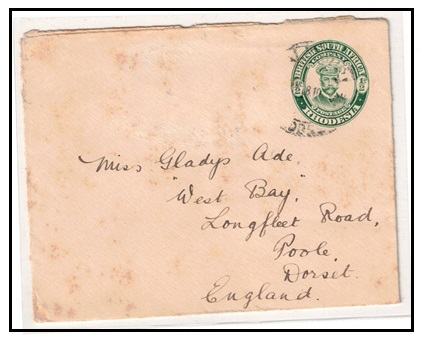 BRITISH SOUTH AFRICA
COMPANY
POSTAGE
RHODESIA
Miss Gladys Ade.
"West Bay,"
Longfleet Road,
Poole,
Dorset.
England.